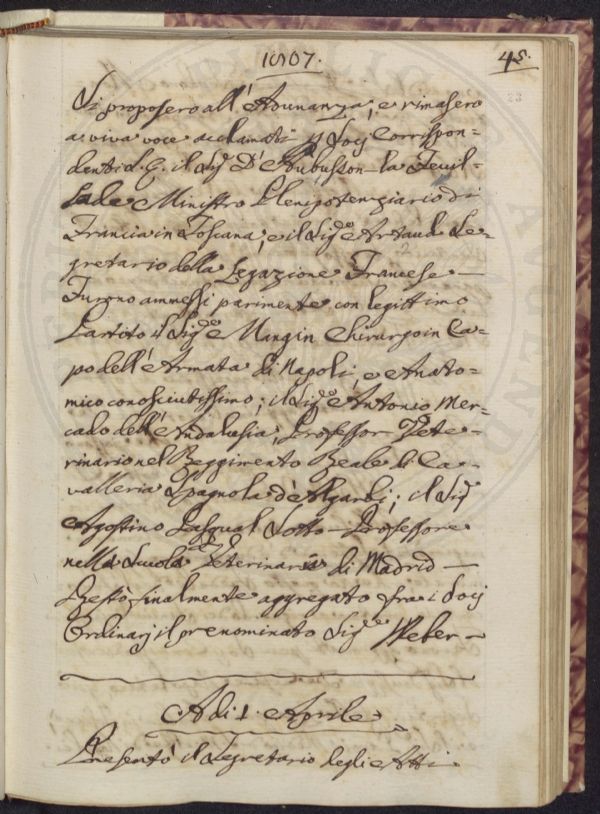 1807.
45.
23
Si proposero all'Adunanza, e rimasero
a viva voce acclamati p Socj Corrispon=
denti S. E. il Sig D'Aubusson la Feuil=
lade Ministro Plenipotenziario di
Francia in Toscana, e il Sig.e Artaud Se=
gretario della Legazione Francese —
Furono ammessi parimente con legittimo
Partito il Sig.e Mangin Chirurgo in Ca=
po dell'Armata di Napoli, e Anato=
mico conosciutissimo; il Sig.e Antonio Mer=
cado dell'Andalusia, Professor Vete=
rinario nel Reggimento Reale di Ca=
valleria Spagnola d'Algarbi; il Sig
Agostino Pasqual Sotto-Professore
nella Scuola Veterinaria di Madrid —
Restò finalmente aggregato fra i Socj
Ordinarj il prenominato Sig.e Weber —
Adi 1. Aprile
Presentò il Segretario degli Atti